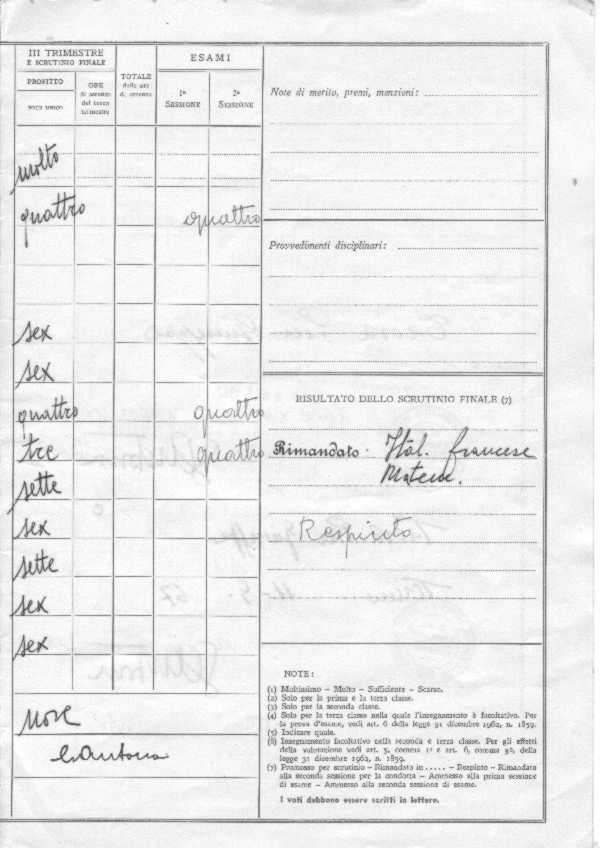 III TRIMESTRE
E SCRUTINIO FINALE
PROFITTO
VOTO UNICO
ORE
di assenza
del terzo
trimestre
TOTALE
delle ore
di assenza
ESAMI
1ª
SESSIONE
2ª
SESSIONE
molto
quattro quattro
sex
sex
quattro quattro
tre quattro
sette
sex
sette
sex
sex
nove
Note di merito, premi, menzioni:
Provvedimenti disciplinari:
RISULTATO DELLO SCRUTINIO FINALE (7)
Rimandato. Ital. francese
Matem.
Respinto
NOTE:
(1) Moltissimo - Molto - Sufficiente - Scarso.
(2) Solo per la prima e la terza classe.
(3) Solo per la seconda classe.
(4) Solo per la terza classe nella quale l'insegnamento è facoltativo. Per
la prova d'esame, vedi art. 6 della legge 31 dicembre 1962, n. 1859.
(5) Indicare quale.
(6) Insegnamento facoltativo nella seconda e terza classe. Per gli effetti
della valutazione vedi art. 5, comma 1º e art. 6, comma 3º, della
legge 31 dicembre 1962, n. 1859.
(7) Promosso per scrutinio - Rimandato in ..... - Respinto - Rimandato
alla seconda sessione per la condotta - Ammesso alla prima sessione
di esame - Ammesso alla seconda sessione di esame.
I voti debbono essere scritti in lettere.